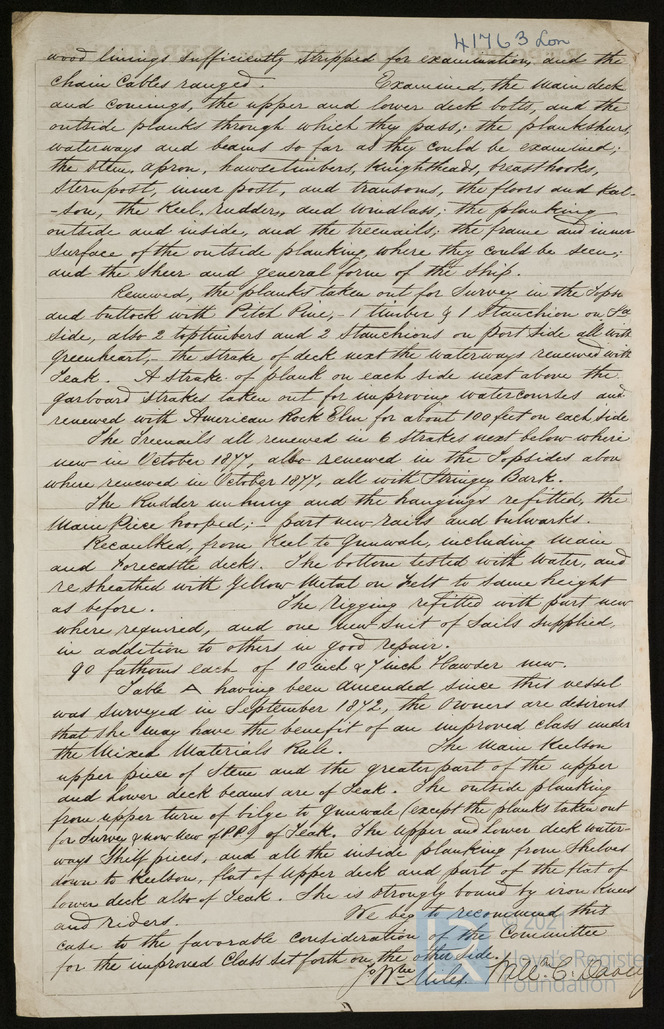 41763 Lon
wood linings sufficiently stripped for examination, and the
chain cables ranged. Examined, the main deck
and comings, the upper and lower deck bolts, and the
outside planks through which they pass; the planksheers,
waterways and beams so far as they could be examined;
the stem, apron, hawsetimbers, Knightheads, breasthooks,
sternpost, inner post, and transoms, the floors and Keel-
-son, the Keel, rudder, and windlass; the planking
outside and inside, and the treenails; the frame and inner
surface of the outside planking, where they could be seen;
and the Sheer and general form of the Ship.
Renewed, the planks taken out for Survey in the Topsi
and buttock with Pitch Pine, - 1 timber & 1 Stanchion on
side, also 2 toptimbers and 2 Stanchions on port side all with
greenheart, - the strake of deck next the waterways renewed with
Teak. A strake of plank on each side next above the
garboard strakes taken out for improving watercourses and
renewed with American Rock Elm for about 100 feet on each side
The Treenails all renewed in 6 strakes next below where
new in October 1877, also renewed in the Topsides above
where renewed in October 1877, all with Stringey Bark.
The Rudder unhung and the hangings refitted, the
Main Piece hooped; - part new rails and bulwarks.
Recaulked, from Keel to Gunwale, including main
and Forecastle decks. The bottom tested with water, and
resheathed with Yellow Metal on Felt to same height
as before. The rigging refitted with part new
where required, and one new Suit of Sails supplied,
in addition to others in good repair.
90 fathoms each of 10 inch & 7 inch Hawser new.
Table A having been amended since this vessel
was surveyed in September 1872, the Owners are desirous
that she may have the benefit of an improved class under
the Mixed Materials Rule. The Main Keelson
upper piece of Stem and the greater part of the upper
and lower deck beams are of Teak. The outside planking
from upper turn of bilge to Gunwale (except the planks taken out
for Survey & now new of P.P.) of Teak. The upper and lower deck water-
ways Shelf pieces, and all the inside planking from Shelves
down to Keelson, flat of upper deck and part of the flat of
lower deck also of Teak. She is strongly bound by iron Knees
and riders. We beg to recommend this
case to the favorable consideration of the Committee
for the improved Class set forth on the other side.
Miles. Willm. C. Davey
© 2021
Lloyd's Register
Foundation